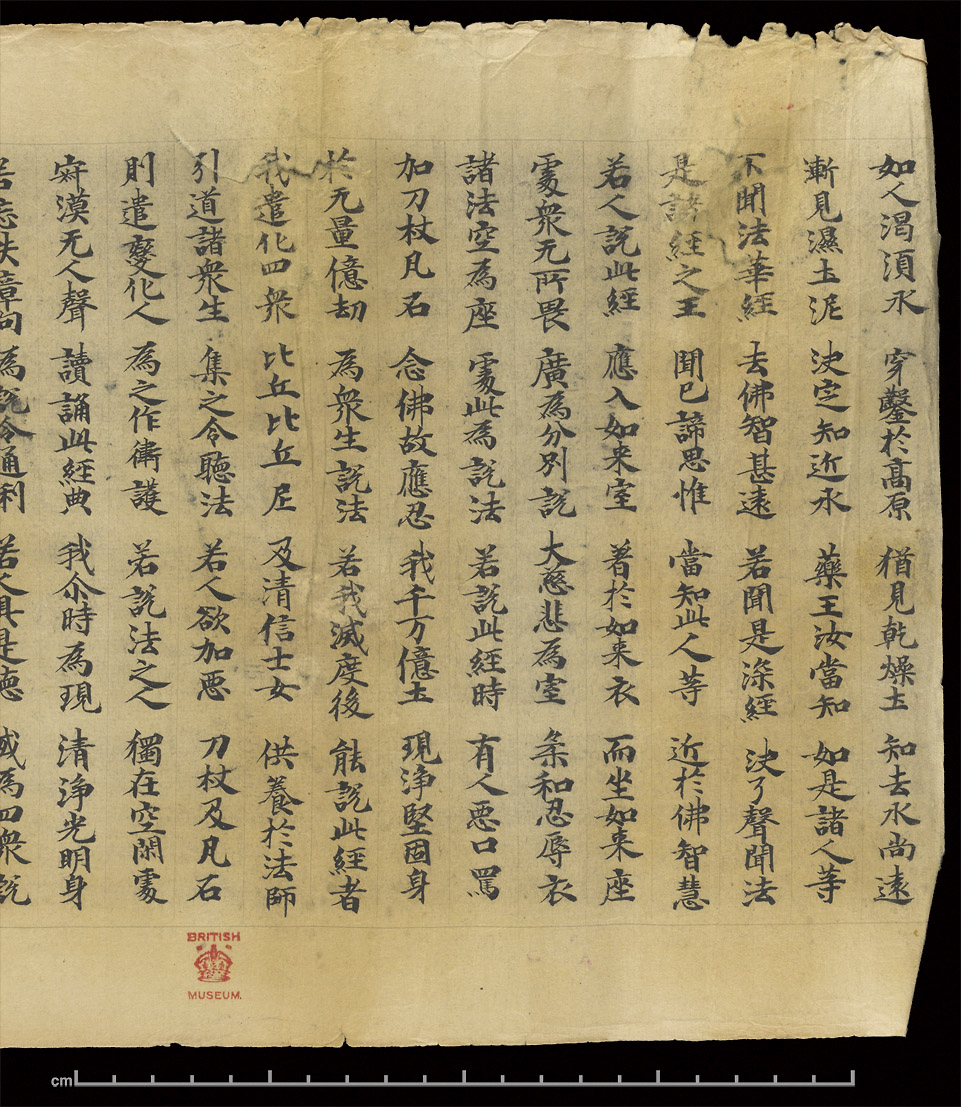 如人渴湏水 穿鑿於高原 猶見乾燥圡 知去水尚遠
漸見濕圡泥 决定知近水 藥王汝當知 如是諸人等
不聞法華經 去佛智甚遠 若聞是深經 决了聲聞法
是諸經之王 聞已諦思惟 當知此人等 近於佛智慧
若人說此經 應入如来室 著於如来衣 而坐如来座
處衆无所畏 廣為分別說 大慈悲為室 柔和忍辱衣
諸法空為座 處此為說法 若說此經時 有人惡口罵
加刀杖凡石 念佛故應忍 我千万億圡 現淨堅固身
於无量億劫 為衆生說法 若我滅度後 能說此經者
我遣化四衆 比丘比丘尼 及清信士女 供養於法師
引道諸衆生 集之令聽法 若人欲加惡 刀杖及凡石
則遣變化人 為之作衛護 若說法之人 獨在空閑處
寂漠无人聲 讀誦此經典 我尒時為現 清淨光明身
若忘失章句 為說令通利 若人具是德 或為四衆說
BRITISH
MUSEUM.
cm